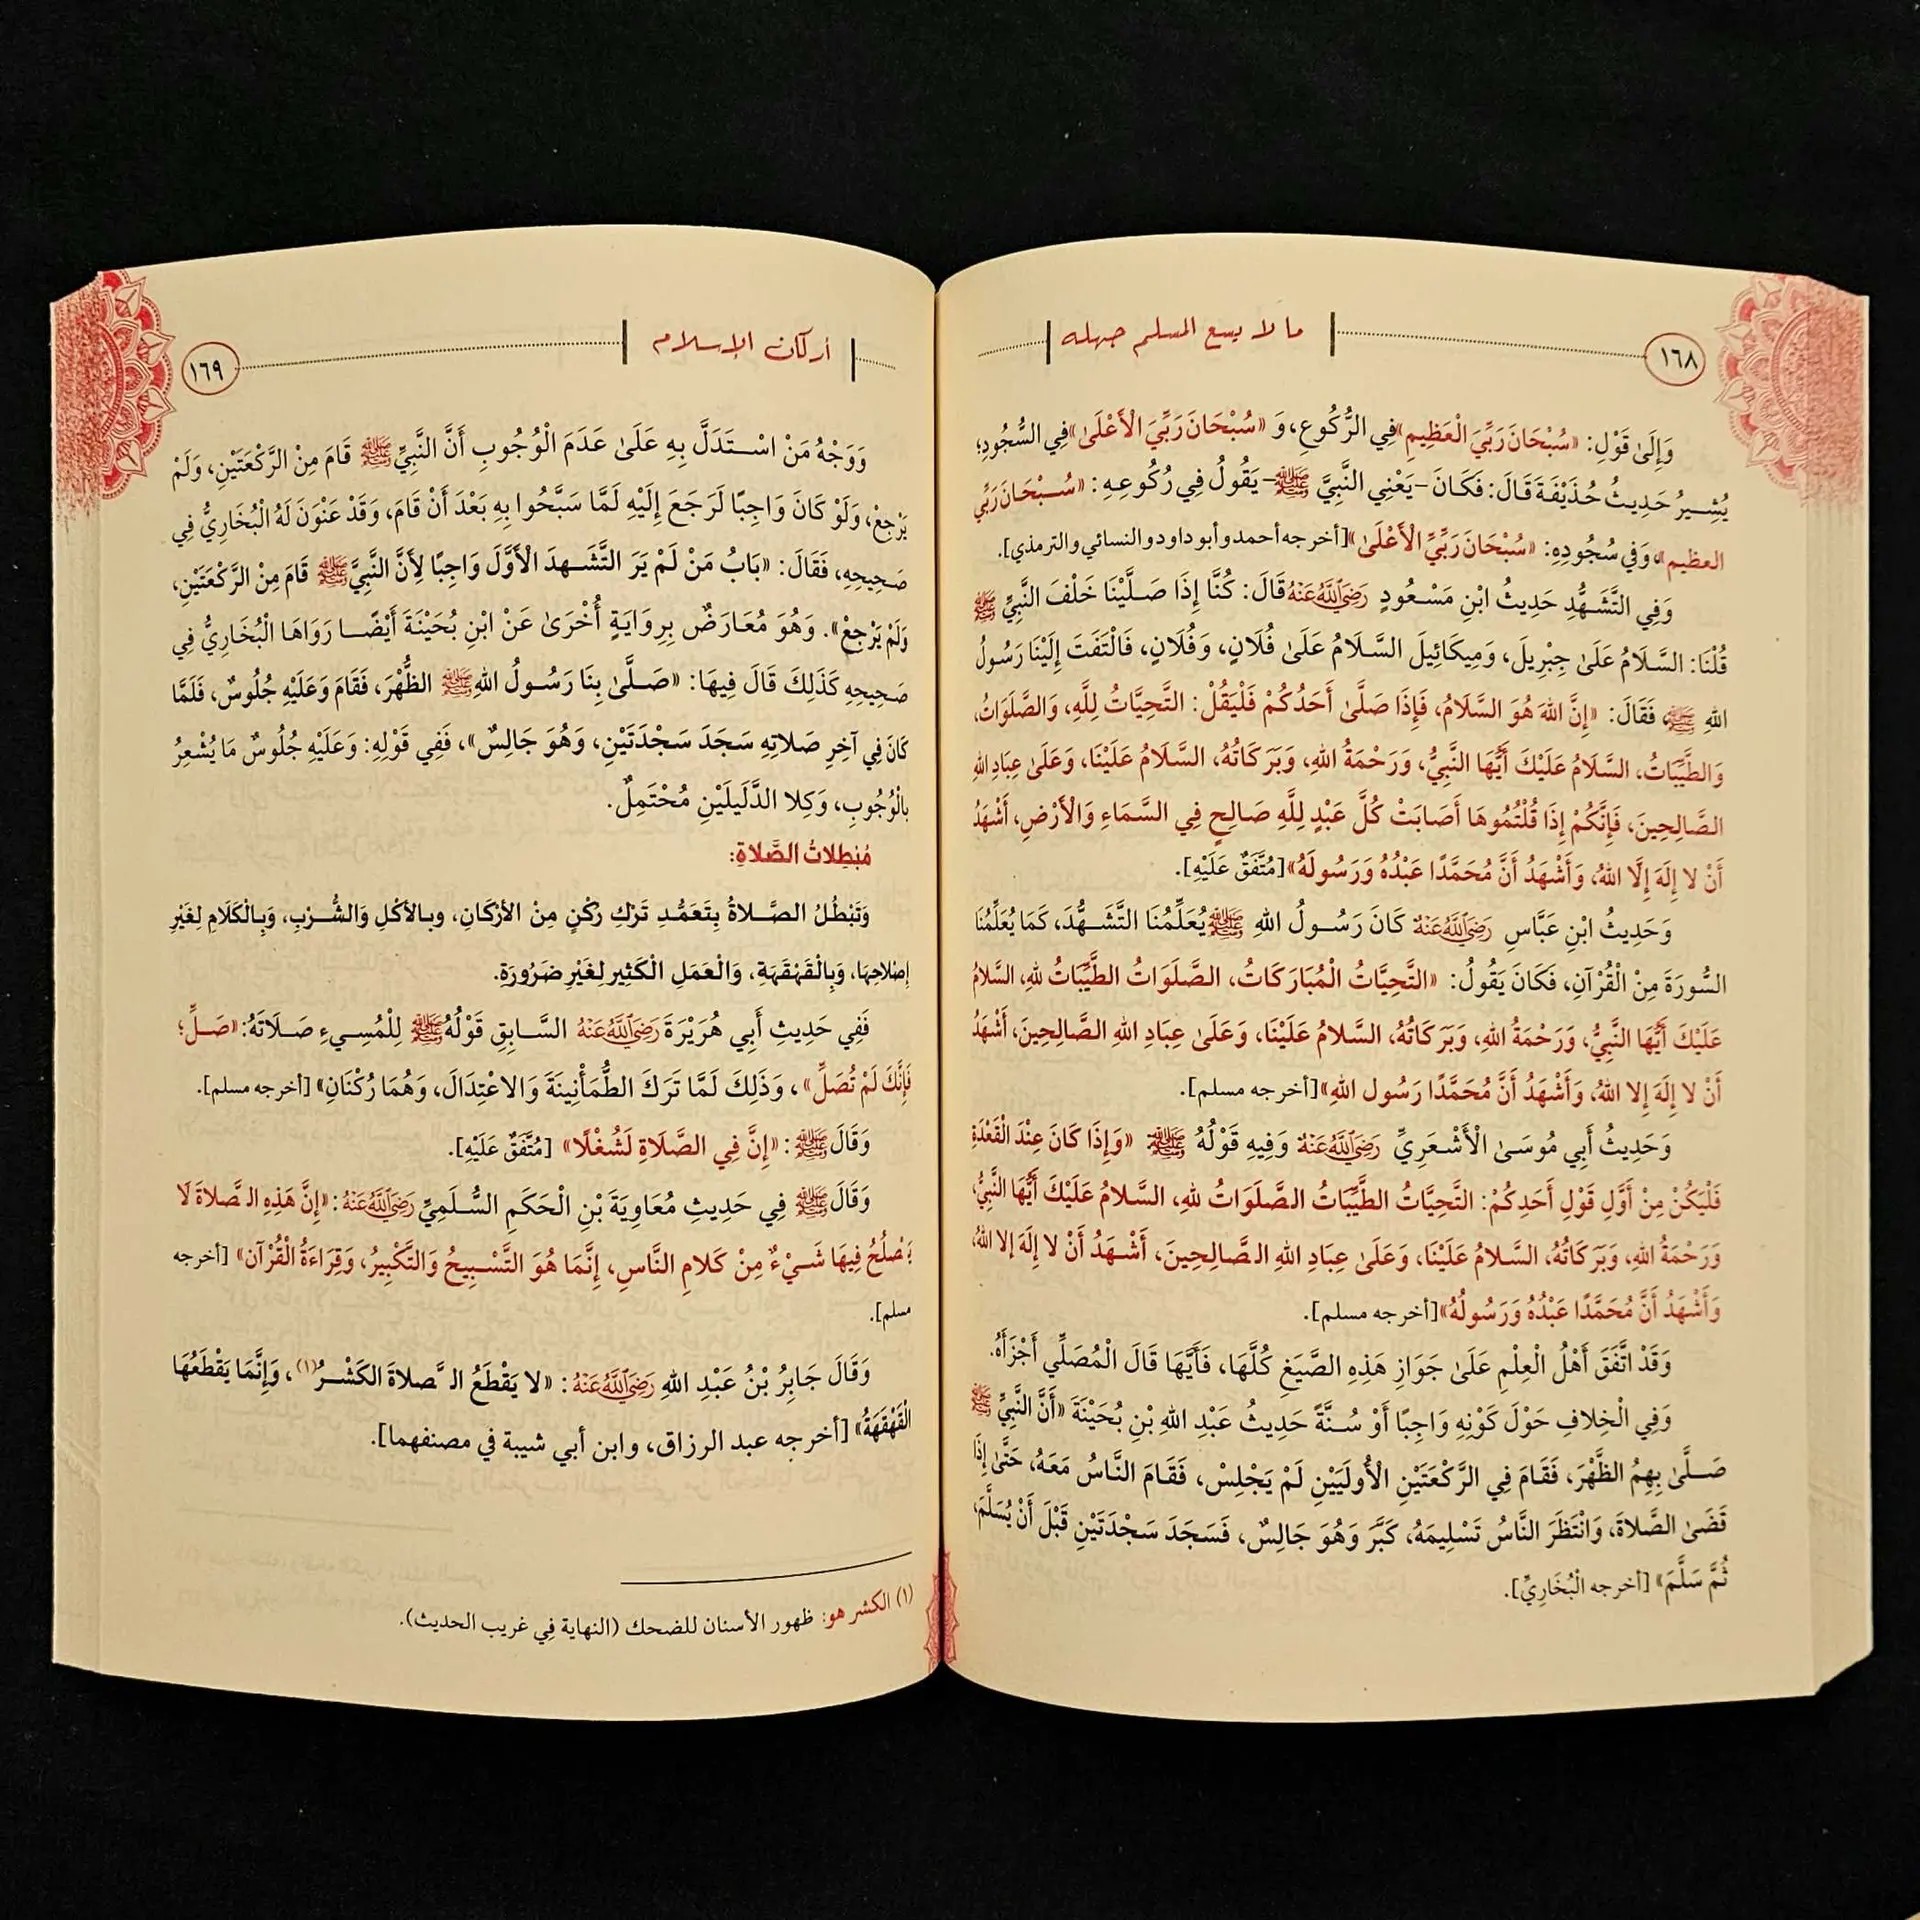 ١٦٨
ما لا يسع المسلم جهله
وَإِلَىٰ قَوْلِ: «سُبْحَانَ رَبِّيَ الْعَظِيمِ» فِي الرُّكُوعِ، وَ «سُبْحَانَ رَبِّيَ الْأَعْلَىٰ» فِي السُّجُودِ؛
يُشِيرُ حَدِيثُ حُذَيْفَةَ قَالَ: فَكَانَ -يَعْنِي النَّبِيَّ ﷺ- يَقُولُ فِي رُكُوعِهِ: «سُبْحَانَ رَبِّيَ
العظيم»، وَفِي سُجُودِهِ: «سُبْحَانَ رَبِّيَ الْأَعْلَىٰ» [أخرجه أحمد وأبو داود والنسائي والترمذي].
وَفِي التَّشَهُّدِ حَدِيثُ ابْنِ مَسْعُودٍ رَضِيَ اللَّهُ عَنْهُ قَالَ: كُنَّا إِذَا صَلَّيْنَا خَلْفَ النَّبِيِّ ﷺ
قُلْنَا: السَّلَامُ عَلَىٰ جِبْرِيلَ، وَمِيكَائِيلَ السَّلَامُ عَلَىٰ فُلَانٍ، وَفُلَانٍ، فَالْتَفَتَ إِلَيْنَا رَسُولُ
اللهِ ﷺ فَقَالَ: «إِنَّ اللهَ هُوَ السَّلَامُ، فَإِذَا صَلَّىٰ أَحَدُكُمْ فَلْيَقُلْ: التَّحِيَّاتُ لِلَّهِ، وَالصَّلَوَاتُ،
وَالطَّيِّبَاتُ، السَّلَامُ عَلَيْكَ أَيُّهَا النَّبِيُّ، وَرَحْمَةُ اللهِ، وَبَرَكَاتُهُ، السَّلَامُ عَلَيْنَا، وَعَلَىٰ عِبَادِ اللهِ
الصَّالِحِينَ، فَإِنَّكُمْ إِذَا قُلْتُمُوهَا أَصَابَتْ كُلَّ عَبْدٍ لِلَّهِ صَالِحٍ فِي السَّمَاءِ وَالْأَرْضِ، أَشْهَدُ
أَنْ لا إِلَهَ إِلَّا اللهُ، وَأَشْهَدُ أَنَّ مُحَمَّدًا عَبْدُهُ وَرَسُولُهُ» [مُتَّفَقٌ عَلَيْهِ].
وَحَدِيثُ ابْنِ عَبَّاسِ رَضِيَ اللَّهُ عَنْهُ كَانَ رَسُولُ اللهِ ﷺ يُعَلِّمُنَا التَّشَهُّدَ، كَمَا يُعَلِّمُنَا
السُّورَةَ مِنْ الْقُرْآنِ، فَكَانَ يَقُولُ: «التَّحِيَّاتُ الْمُبَارَكَاتُ، الصَّلَوَاتُ الطَّيِّبَاتُ للهِ، السَّلامُ
عَلَيْكَ أَيُّهَا النَّبِيُّ، وَرَحْمَةُ اللهِ، وَبَرَكَاتُهُ، السَّلامُ عَلَيْنَا، وَعَلَىٰ عِبَادِ اللهِ الصَّالِحِينَ، أَشْهَدُ
أَنْ لا إِلَهَ إِلا اللهُ، وَأَشْهَدُ أَنَّ مُحَمَّدًا رَسُول اللهِ» [أخرجه مسلم].
وَحَدِيثُ أَبِي مُوسَىٰ الْأَشْعَرِيِّ رَضِيَ اللَّهُ عَنْهُ وَفِيهِ قَوْلُهُ ﷺ «وَإِذَا كَانَ عِنْدَ الْقَعْدَةِ
فَلْيَكُنْ مِنْ أَوَّلِ قَوْلِ أَحَدِكُمْ: التَّحِيَّاتُ الطَّيِّبَاتُ الصَّلَوَاتُ للهِ، السَّلامُ عَلَيْكَ أَيُّهَا النَّبِيُّ،
وَرَحْمَةُ اللهِ، وَبَرَكَاتُهُ، السَّلامُ عَلَيْنَا، وَعَلَىٰ عِبَادِ اللهِ الصَّالِحِينَ، أَشْهَدُ أَنْ لا إِلَهَ إِلا اللهُ،
وَأَشْهَدُ أَنَّ مُحَمَّدًا عَبْدُهُ وَرَسُولُهُ» [أخرجه مسلم].
وَقَدْ اتَّفَقَ أَهْلُ الْعِلْمِ عَلَىٰ جَوَازِ هَذِهِ الصِّيَغِ كُلِّهَا، فَأَيَّهَا قَالَ الْمُصَلِّي أَجْزَأَهُ.
وَفِي الْخِلافِ حَوْلَ كَوْنِهِ وَاجِبًا أَوْ سُنَّةً حَدِيثُ عَبْدِ اللهِ بْنِ بُحَيْنَةَ «أَنَّ النَّبِيَّ ﷺ
صَلَّىٰ بِهِمُ الظُّهْرَ، فَقَامَ فِي الرَّكْعَتَيْنِ الْأُولَيَيْنِ لَمْ يَجْلِسْ، فَقَامَ النَّاسُ مَعَهُ، حَتَّىٰ إِذَا
قَضَىٰ الصَّلاةَ، وَانْتَظَرَ النَّاسُ تَسْلِيمَهُ، كَبَّرَ وَهُوَ جَالِسٌ، فَسَجَدَ سَجْدَتَيْنِ قَبْلَ أَنْ يُسَلِّمَ،
ثُمَّ سَلَّمَ» [أخرجه الْبُخَارِيّ].
أركان الإسلام
١٦٩
وَوَجْهُ مَنْ اسْتَدَلَّ بِهِ عَلَىٰ عَدَمَ الْوُجُوبِ أَنَّ النَّبِيَّ ﷺ قَامَ مِنْ الرَّكْعَتَيْنِ، وَلَمْ
يَرْجِعْ، وَلَوْ كَانَ وَاجِبًا لَرَجَعَ إِلَيْهِ لَمَّا سَبَّحُوا بِهِ بَعْدَ أَنْ قَامَ، وَقَدْ عَنْوَنَ لَهُ الْبُخَارِيُّ فِي
صَحِيحِهِ، فَقَالَ: «بَابُ مَنْ لَمْ يَرَ التَّشَهدَ الْأَوَّلَ وَاجِبًا لِأَنَّ النَّبِيَّ ﷺ قَامَ مِنْ الرَّكْعَتَيْنِ،
وَلَمْ يَرْجِعْ». وَهُوَ مُعَارَضٌ بِرِوَايَةٍ أُخْرَىٰ عَنْ ابْنِ بُحَيْنَةَ أَيْضًا رَوَاهَا الْبُخَارِيُّ فِي
صَحِيحِهِ كَذَلِكَ قَالَ فِيهَا: «صَلَّىٰ بِنَا رَسُولُ اللهِ ﷺ الظُّهْرَ، فَقَامَ وَعَلَيْهِ جُلُوسٌ، فَلَمَّا
كَانَ فِي آخِرِ صَلاتِهِ سَجَدَ سَجْدَتَيْنِ، وَهُوَ جَالِسٌ»، فَفِي قَوْلِهِ: وَعَلَيْهِ جُلُوسٌ مَا يُشْعِرُ
بِالْوُجُوبِ، وَكِلا الدَّلَيلَيْنِ مُحْتَمِلٌ.
مُبْطِلاتُ الصَّلاةِ:
وَتَبْطُلُ الصَّلاةُ بِتَعَمُّدِ تَرْكِ رُكْنٍ مِنْ الأَرْكَانِ، وبالأكْلِ وَالشُّرْبِ، وَبِالْكَلَامِ لِغَيْرِ
إِصْلاحِهَا، وَبِالْقَهْقَهَةِ، وَالْعَمَلِ الْكَثِيرِ لِغَيْرِ ضَرُورَةٍ.
فَفِي حَدِيثِ أَبِي هُرَيْرَةَ رَضِيَ اللَّهُ عَنْهُ السَّابِقِ قَوْلُهُ ﷺ لِلْمُسِيءِ صَلَاتَهُ: «صَلِّ؛
فَإِنَّكَ لَمْ تُصَلِّ» ، وَذَلِكَ لَمَّا تَرَكَ الطُّمَأْنِينَةَ وَالاعْتِدَالَ، وَهُمَا رُكْنَانِ» [أخرجه مسلم].
وَقَالَ ﷺ: «إِنَّ فِي الصَّلَاةِ لَشُغْلًا» [مُتَّفَقٌ عَلَيْهِ].
وَقَالَ ﷺ فِي حَدِيثِ مُعَاوِيَةَ بْنِ الْحَكَمِ السُّلَمِيِّ رَضِيَ اللَّهُ عَنْهُ: «إِنَّ هَذِهِ الصَّلاةَ لَا
يَصْلُحُ فِيهَا شَيْءٌ مِنْ كَلامِ النَّاسِ، إِنَّمَا هُوَ التَّسْبِيحُ وَالتَّكْبِيرُ، وَقِرَاءَةُ الْقُرْآن» [أخرجه
مسلم].
وَقَالَ جَابِرُ بْنُ عَبْدِ اللهِ رَضِيَ اللَّهُ عَنْهُ: «لا يَقْطَعُ الصَّلاةَ الكَشْرُ(١)، وَإِنَّمَا يَقْطَعُهَا
الْقَهْقَهَةُ» [أخرجه عبد الرزاق، وابن أبي شيبة في مصنفهما].
(١) الكشر هو: ظهور الأسنان للضحك (النهاية في غريب الحديث).